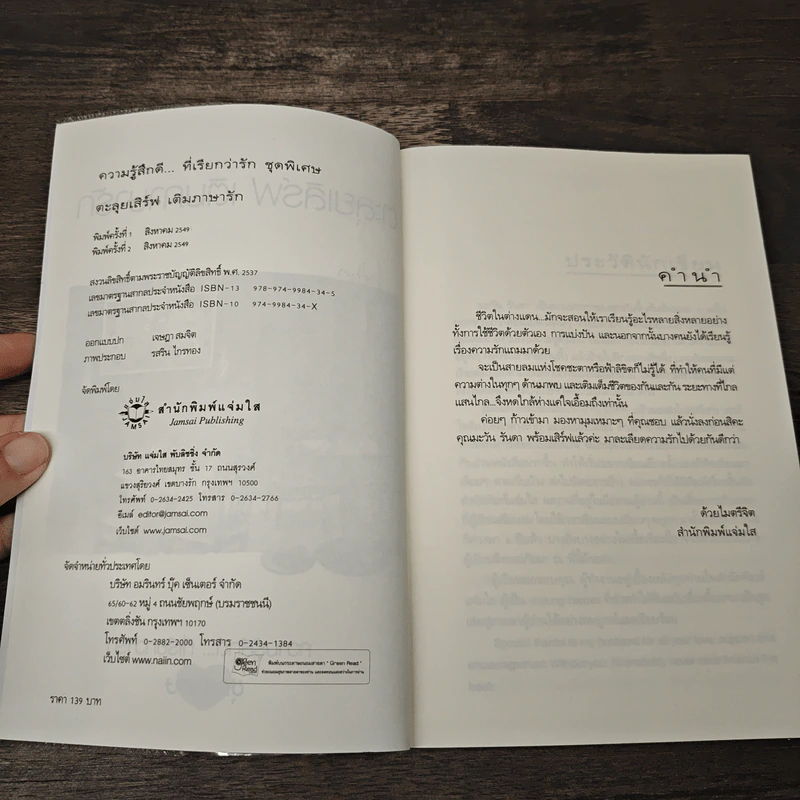 ความรู้สึกดี... ที่เรียกว่ารัก ชุดพิเศษ
ตะลุยเสิร์ฟ เติมภาษารัก
พิมพ์ครั้งที่ 1 สิงหาคม 2549
พิมพ์ครั้งที่ 2 สิงหาคม 2549
สงวนลิขสิทธิ์ตามพระราชบัญญัติลิขสิทธิ์ พ.ศ. 2537
เลขมาตรฐานสากลประจำหนังสือ ISBN-13 978-974-9984-34-5
เลขมาตรฐานสากลประจำหนังสือ ISBN-10 974-9984-34-X
ออกแบบปก เจษฎา สมจิต
ภาพประกอบ รสริน ไกรทอง
จัดพิมพ์โดย
แจ่มใส
JAMSAI
สำนักพิมพ์แจ่มใส
Jamsai Publishing
บริษัท แจ่มใส พับลิชชิ่ง จำกัด
163 อาคารไทยสมุทร ชั้น 17 ถนนสุรวงศ์
แขวงสุริยวงศ์ เขตบางรัก กรุงเทพฯ 10500
โทรศัพท์ 0-2634-2425 โทรสาร 0-2634-2766
อีเมล์ editor@jamsai.com
เว็บไซต์ www.jamsai.com
จัดจำหน่ายทั่วประเทศโดย
บริษัท อมรินทร์ บุ๊ค เซ็นเตอร์ จำกัด
65/60-62 หมู่ 4 ถนนชัยพฤกษ์ (บรมราชชนนี)
เขตตลิ่งชัน กรุงเทพฯ 10170
โทรศัพท์ 0-2882-2000 โทรสาร 0-2434-1384
เว็บไซต์ www.naiin.com
Green Read
พิมพ์บนกระดาษถนอมสายตา "Green Read"
ราคา 139 บาท
คำนำ
ชีวิตในต่างแดน...มักจะสอนให้เราเรียนรู้อะไรหลายสิ่งหลายอย่าง
ทั้งการใช้ชีวิตด้วยตัวเอง การแบ่งปัน และนอกจากนั้นบางคนยังได้เรียนรู้
เรื่องความรักแถมมาด้วย
จะเป็นสายลมแห่งโชคชะตาหรือฟ้าลิขิตก็ไม่รู้ได้ ที่ทำให้คนที่มีแต่
ความต่างในทุกๆ ด้านมาพบ และเติมเต็มชีวิตของกันและกัน ระยะทางที่ไกล
แสนไกล...จึงหดใกล้ห่างแค่ใจเอื้อมถึงเท่านั้น
ค่อยๆ ก้าวเข้ามา มองหามุมเหมาะๆ ที่คุณชอบ แล้วนั่งลงก่อนสิคะ
คุณมะวัน รันดา พร้อมเสิร์ฟแล้วค่ะ มาละเลียดความรักไปด้วยกันดีกว่า
ด้วยไมตรีจิต
สำนักพิมพ์แจ่มใส